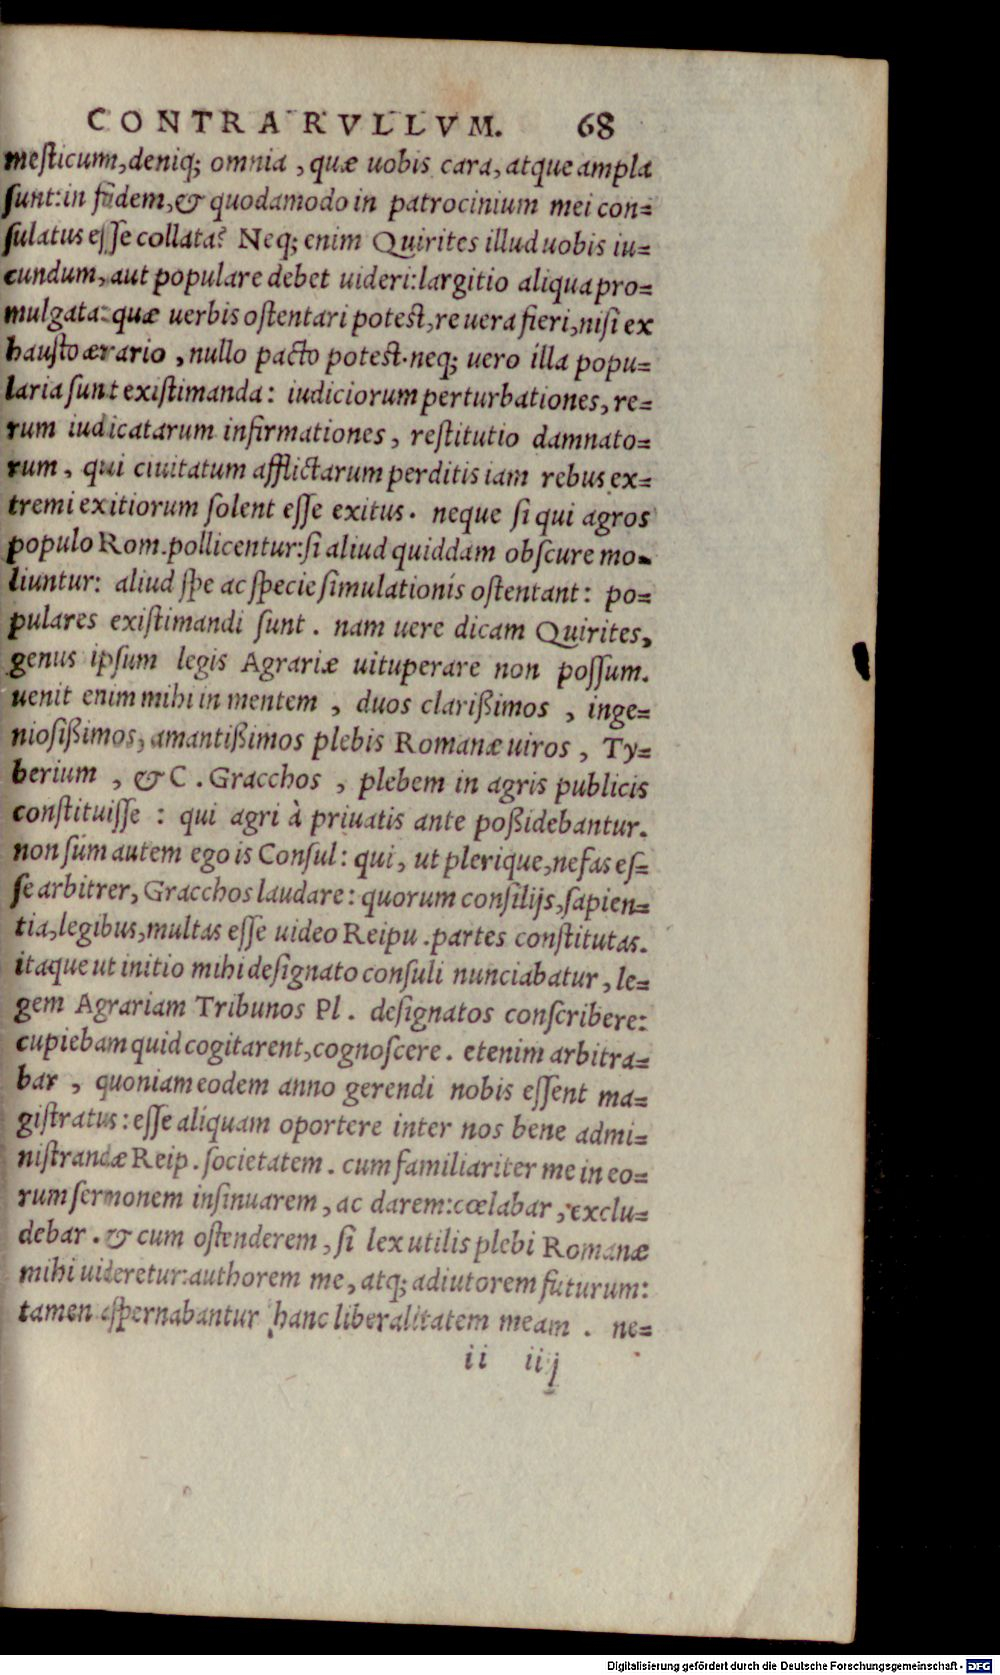 CONTRA RVLLVM. 68
mesticum, deniq; omnia, quæ uobis cara, atque ampla
sunt: in fidem, & quodamodo in patrocinium mei con=
sulatus esse collata? Neq; enim Quirites illud uobis iu=
cundum, aut populare debet uideri: largitio aliqua pro=
mulgata: quæ uerbis ostentari potest, re uera fieri, nisi ex
hausto ærario, nullo pacto potest. neq; uero illa popu=
laria sunt existimanda: iudiciorum perturbationes, re=
rum iudicatarum infirmationes, restitutio damnato=
rum, qui ciuitatum afflictarum perditis iam rebus ex=
tremi exitiorum solent esse exitus. neque si qui agros
populo Rom. pollicentur: si aliud quiddam obscure mo=
liuntur: aliud spe ac specie simulationis ostentant: po=
pulares existimandi sunt. nam uere dicam Quirites,
genus ipsum legis Agrariæ uituperare non possum.
uenit enim mihi in mentem, duos clarißimos, inge=
niosißimos, amantißimos plebis Romanæ uiros, Ty=
berium, & C. Gracchos, plebem in agris publicis
constituisse: qui agri à priuatis ante poßidebantur.
non sum autem ego is Consul: qui, ut plerique, nefas es=
se arbitrer, Gracchos laudare: quorum consilijs, sapien=
tia, legibus, multas esse uideo Reipu. partes constitutas.
itaque ut initio mihi designato consuli nunciabatur, le=
gem Agrariam Tribunos Pl. designatos conscribere:
cupiebam quid cogitarent, cognoscere. etenim arbitra=
bar, quoniam eodem anno gerendi nobis essent ma=
gistratus: esse aliquam oportere inter nos bene admi=
nistrandæ Reip. societatem. cum familiariter me in eo=
rum sermonem insinuarem, ac darem: cœlabar, exclu=
debar. & cum ostenderem, si lex utilis plebi Romanæ
mihi uideretur: authorem me, atq; adiutorem futurum:
tamen aspernabantur hanc liberalitatem meam. ne=
ii iij
Digitalisierung gefördert durch die Deutsche Forschungsgemeinschaft - DFG